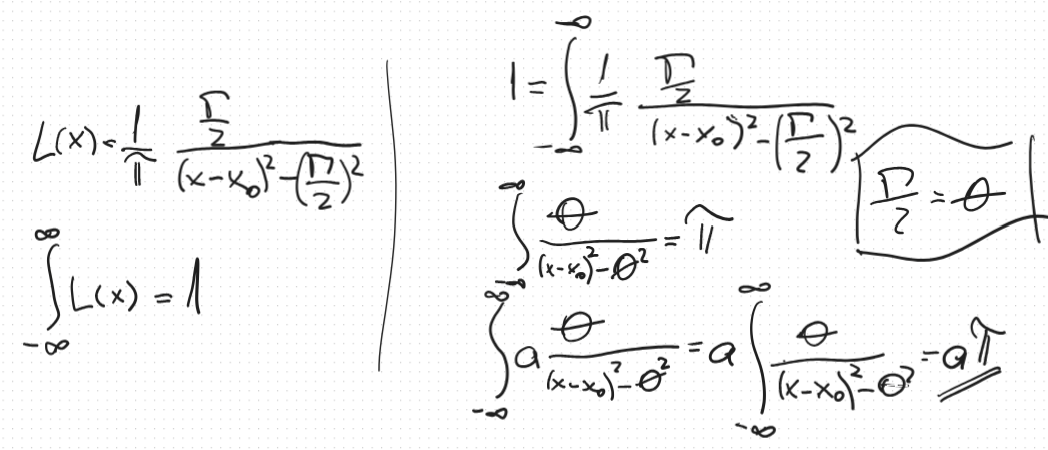 L(x) = 1/π (Γ/2)/((x-x₀)² - (Γ/2)²)
∫_{-∞}^{∞} L(x) = 1
1 = ∫_{-∞}^{-∞} 1/π (Γ/2)/((x-x₀)² - (Γ/2)²)
Γ/2 = θ
∫_{-∞}^{∞} θ/((x-x₀)² - θ²) = π
∫_{-∞}^{∞} a θ/((x-x₀)² - θ²) = a ∫_{-∞}^{∞} θ/((x-x₀)² - θ²) = aπ